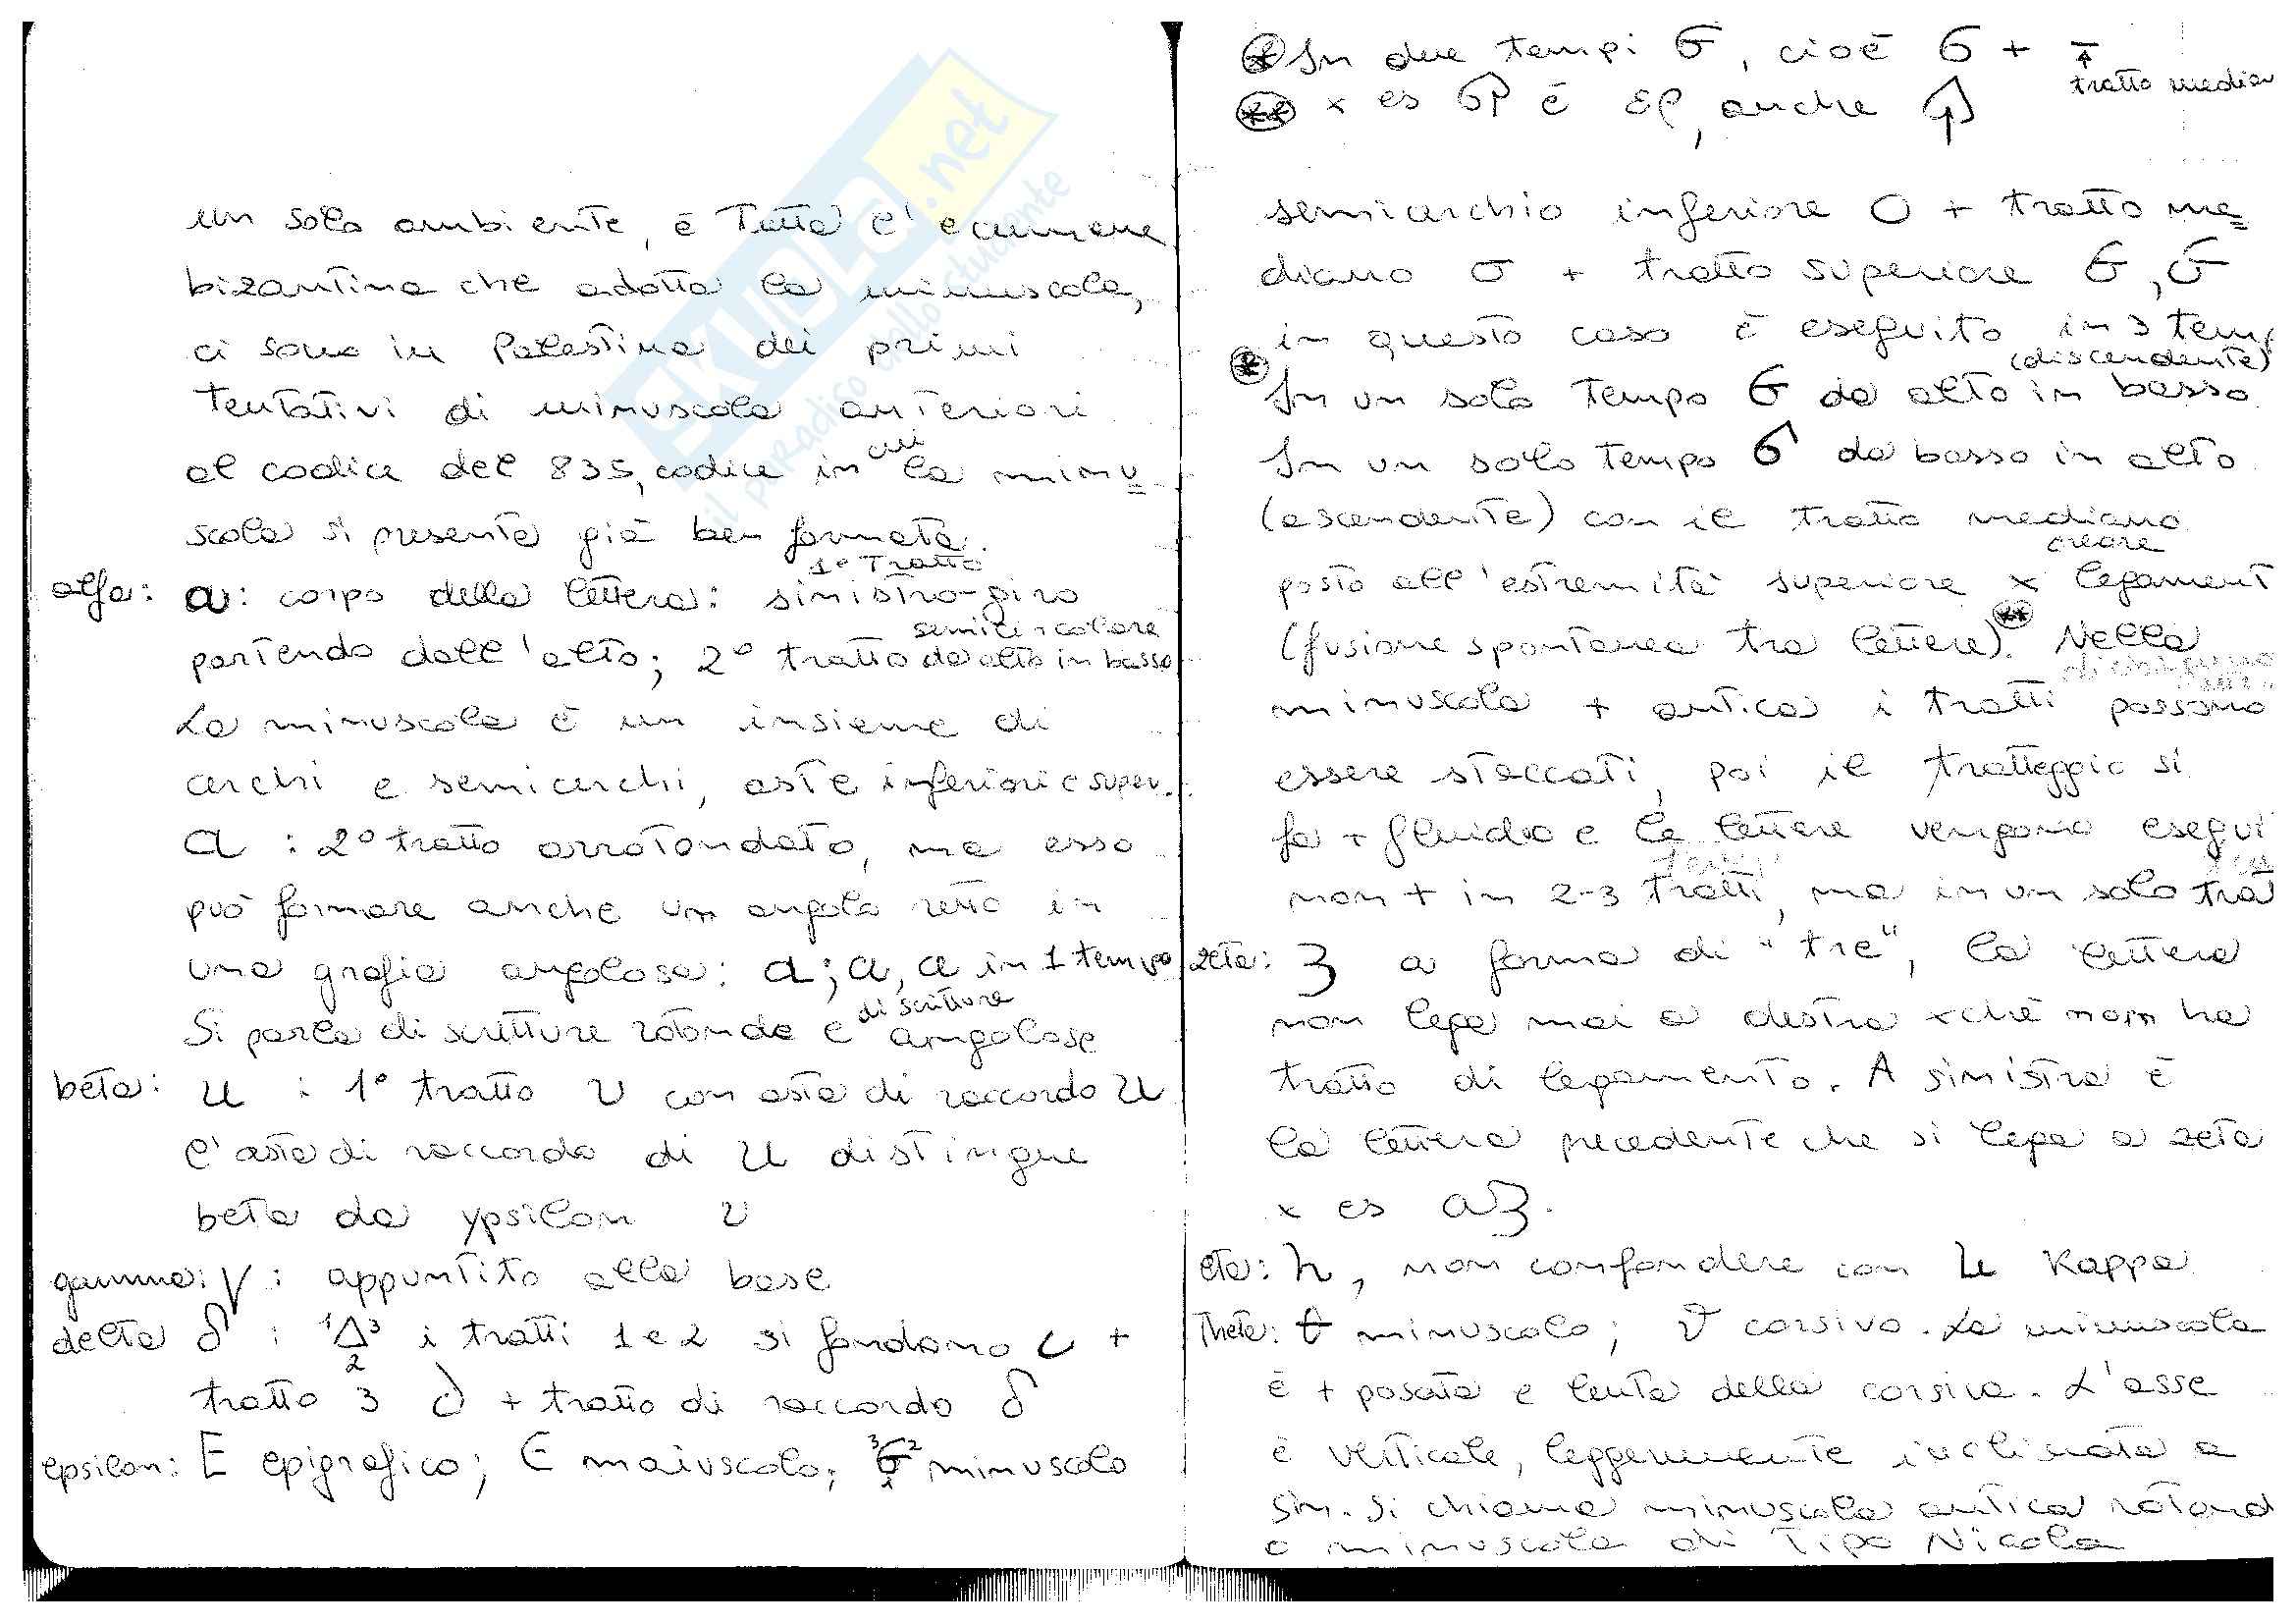 un solo ambiente, è tutta l'ecumene
bizantina che adotta la minuscola,
ci sono in Palestina dei primi
tentativi di minuscola anteriori
al codice del 835, codice in cui la minu
scola si presenta già ben formata.
alfa: α: corpo della lettera: 1° tratto sinistro-giro
semicircolare
partendo dall'alto; 2° tratto da alto in basso
La minuscola è un insieme di
archi e semiarchi, aste inferiori e super.
a : 2° tratto arrotondato, ma esso
può formare anche un angolo retto in
una grafia angolosa: a; a, a in 1 tempo
Si parla di scritture rotonde e di scritture angolose
beta: u : 1° tratto υ con asta di raccordo u
l'asta di raccordo di u distingue
beta da ypsilon υ
gamma: γ : appuntito alla base
delta δ : 1Δ3 2 i tratti 1 e 2 si fondono +
tratto 3 + tratto di raccordo δ
epsilon: E epigrafico; Є maiuscolo; minuscolo
* In due tempi, cioè 6 +
tratto median
** x es è ερ, anche
semiarchio inferiore O + tratto me
diano σ + tratto superiore
in questo caso è eseguito in 3 temp
* In un solo tempo da alto in basso (discendente)
In un solo tempo da basso in alto
(ascendente) con il tratto mediano
posto all'estremità superiore x creare legament
(fusione spontanea tra lettere).** Nella
minuscola + antica i tratti possono
essere staccati, poi il tratteggio si
fa + fluido e le lettere vengono esegui
non + in 2-3 tratti, ma in un solo tra
zeta: 3 a forma di "tre", la lettera
non lega mai a destra xchè non ha
tratto di legamento. A sinistra è
la lettera precedente che si lega a zeta
x es a3.
eta: h, non confondere con u Kappa
Theta: θ minuscolo; ϑ corsivo. La minuscola
è + posata e lenta della corsiva. L'asse
è verticale, leggermente inclinata a
sin. Si chiama minuscola antica rotond
o minuscola di Tipo Nicola
EKUOLA.net
il paradiso dello studente